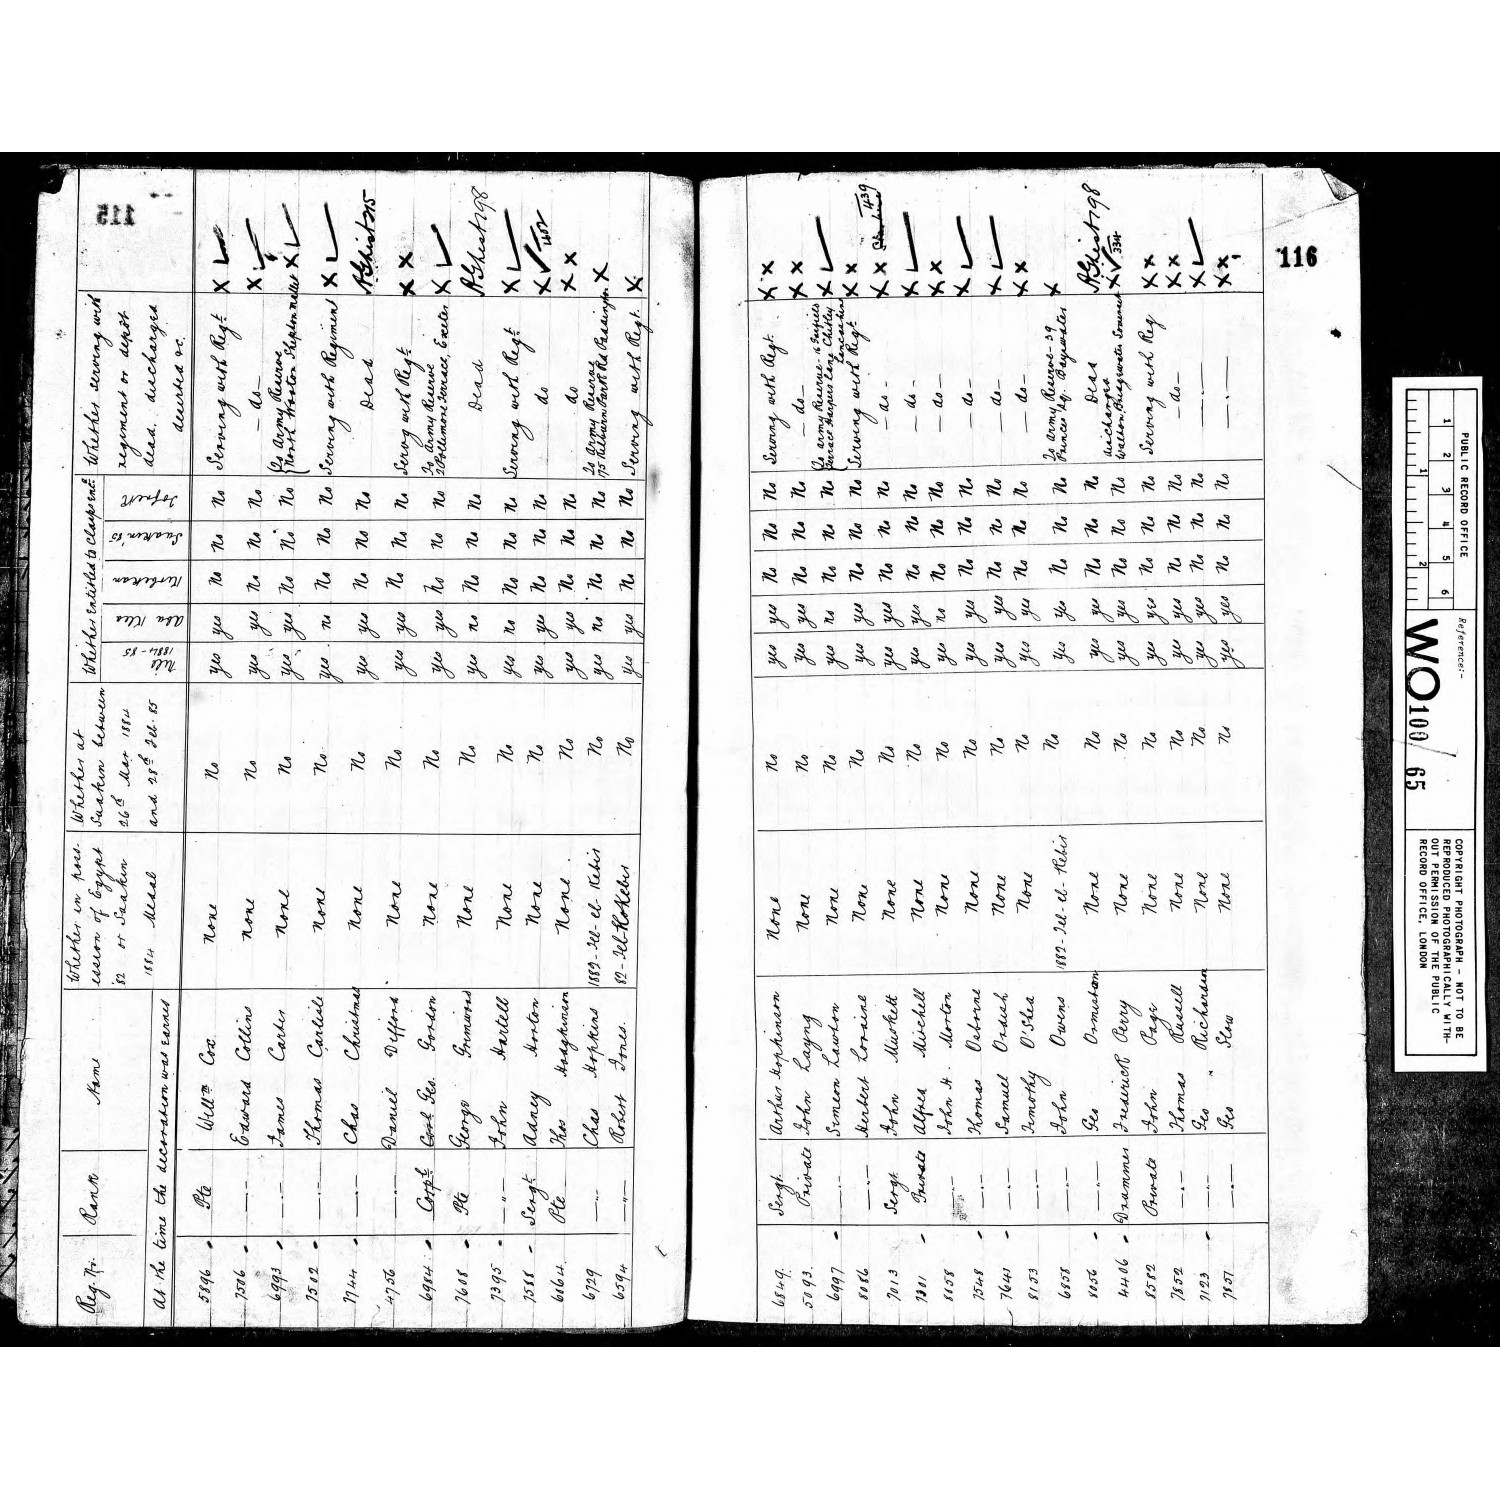 115
Reg. No. Rank Name Whether in possession of Egypt 82 or Suakin 1884 Medal Whether at Suakin between 26th Mar 1884 and 28th Feb. 85 Whether Entitled to Clasps Engd. Whether serving with regiment or depôt dead, discharged deserted &c.
At the time the decoration was earned
Nile 1884-85 Abu Klea Kirbekan Suakin '85 Tofrek
5896 Pte Willm Cox None No yes yes No No No Serving with Regt. X
7506 —"— Edward Collins None No yes yes No No No — do — X
6993 —"— James Carter None No yes yes No No No To Army Reserve North Wooton Shepton Mallet X
7502 —"— Thomas Carlisle None No yes no No No No Serving with Regiment X
7744 —"— Chas Christmas None No yes yes No No No Dead
4756 —"— Daniel Defford None No yes yes No No No Servg with Regt. X X
6984 Corpl. Geo. Gordon None No yes yes No No No To Army Reserve Terrace, Exeter X
7608 Pte George Grimwood None No yes no No No No Dead
7395 —"— John Hartell None No yes No No No No Serving with Regt. X
7588 Sergt. Adney Horton None No yes yes No No No do X 402
6064 Pte Thos Hodgkinson None No yes yes No No No do X X
6729 —"— Chas Hopkins 1882-Tel-el-Kebir No yes No No No No To Army Reserve 175 Kilburn Park Rd Paddington X X
6594 —"— Robert Jones. No yes yes No No No Serving with Regt. X
116
6849. Sergt. Arthur Hopkinson None No yes yes No No No Serving with Regt. X X
5093. Private John Layng None No yes yes No No No — do — X X
6997 —"— Simeon Lawton None No yes no No No No To Army Reserve Terrace Harpers Lane Chorley Lancashire X
8086 —"— Herbert Loraine None No yes yes No No No Serving with Regt. X X
7013 Sergt. John Muskett None No yes yes No No No — do — X X 439
7301 Private Alfred Michell None No yes yes No No No — do — X
8658 —"— John H. Morton None No yes no No No No — do — X X
7548 —"— Thomas Osborne None No yes yes No No No — do — X
7641 —"— Samuel Ordish None No yes yes No No No — do — X
8153 —"— Timothy O'Shea None No yes yes No No No — do — X X
6858 —"— John Owens 1882-Tel-el-Kebir No yes yes No No No To Army Reserve - 39 Princes Sq. Bayswater X
8056 —"— Geo Ormiston None No yes yes No No No Dead
4406 Drummer Frederick Perry None No yes yes No No No discharged Walton, Bridgwater Somerset X 334
8582 Private John Page None No yes yes No No No Serving with Reg X X
7852 —"— Thomas Russell None No yes yes No No No — do — X X
7123 —"— Geo Richardson None No yes yes No No No —"— X
7857 —"— Geo Slow None No yes yes No No No —"— X X
PUBLIC RECORD OFFICE
1 2 3 4 5 6
1 2
Reference:-
WO 100 / 65
COPYRIGHT PHOTOGRAPH - NOT TO BE
REPRODUCED PHOTOGRAPHICALLY WITH-
OUT PERMISSION OF THE PUBLIC
RECORD OFFICE, LONDON